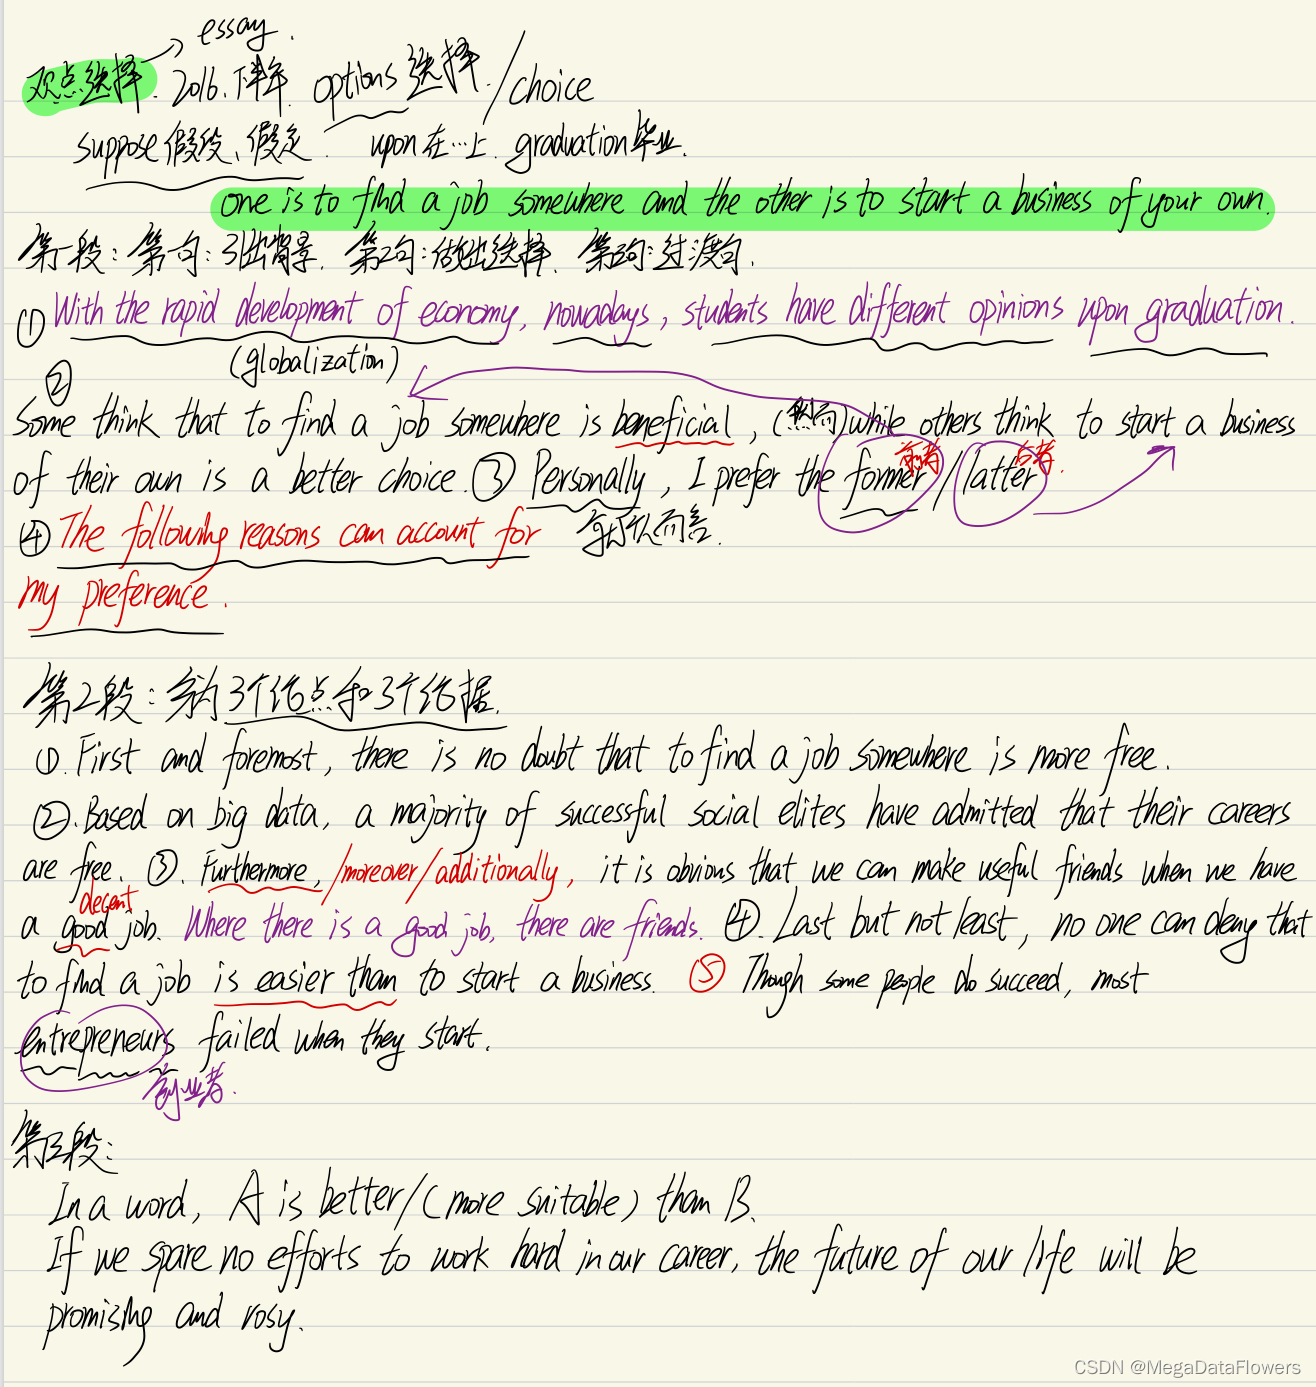 essay.
观点选择. 2016.下半年. options选择./choice
suppose假设、假定. upon在…上. graduation毕业.
one is to find a job somewhere and the other is to start a business of your own.
第一段: 第一句: 引出背景. 第2句: 做出选择. 第3句: 过渡句.
① With the rapid development of economy, nowadays, students have different opinions upon graduation.
(globalization)
②
Some think that to find a job somewhere is beneficial, (然而)while others think to start a business
前者 后者.
of their own is a better choice. ③ Personally, I prefer the former/latter
④ The following reasons can account for 就我个人而言.
my preference.
第2段: 分为3个论点和3个论据.
①. First and foremost, there is no doubt that to find a job somewhere is more free.
②. Based on big data, a majority of successful social elites have admitted that their careers
are free. ③. Furthermore, /moreover/additionally, it is obvious that we can make useful friends when we have
decent
a good job. Where there is a good job, there are friends. ④. Last but not least, no one can deny that
to find a job is easier than to start a business. ⑤ Though some people do succeed, most
entrepreneurs failed when they start.
创业者.
第3段:
In a word, A is better/(more suitable) than B.
If we spare no efforts to work hard in our career, the future of our life will be
promising and rosy.
CSDN @MegaDataFlowers